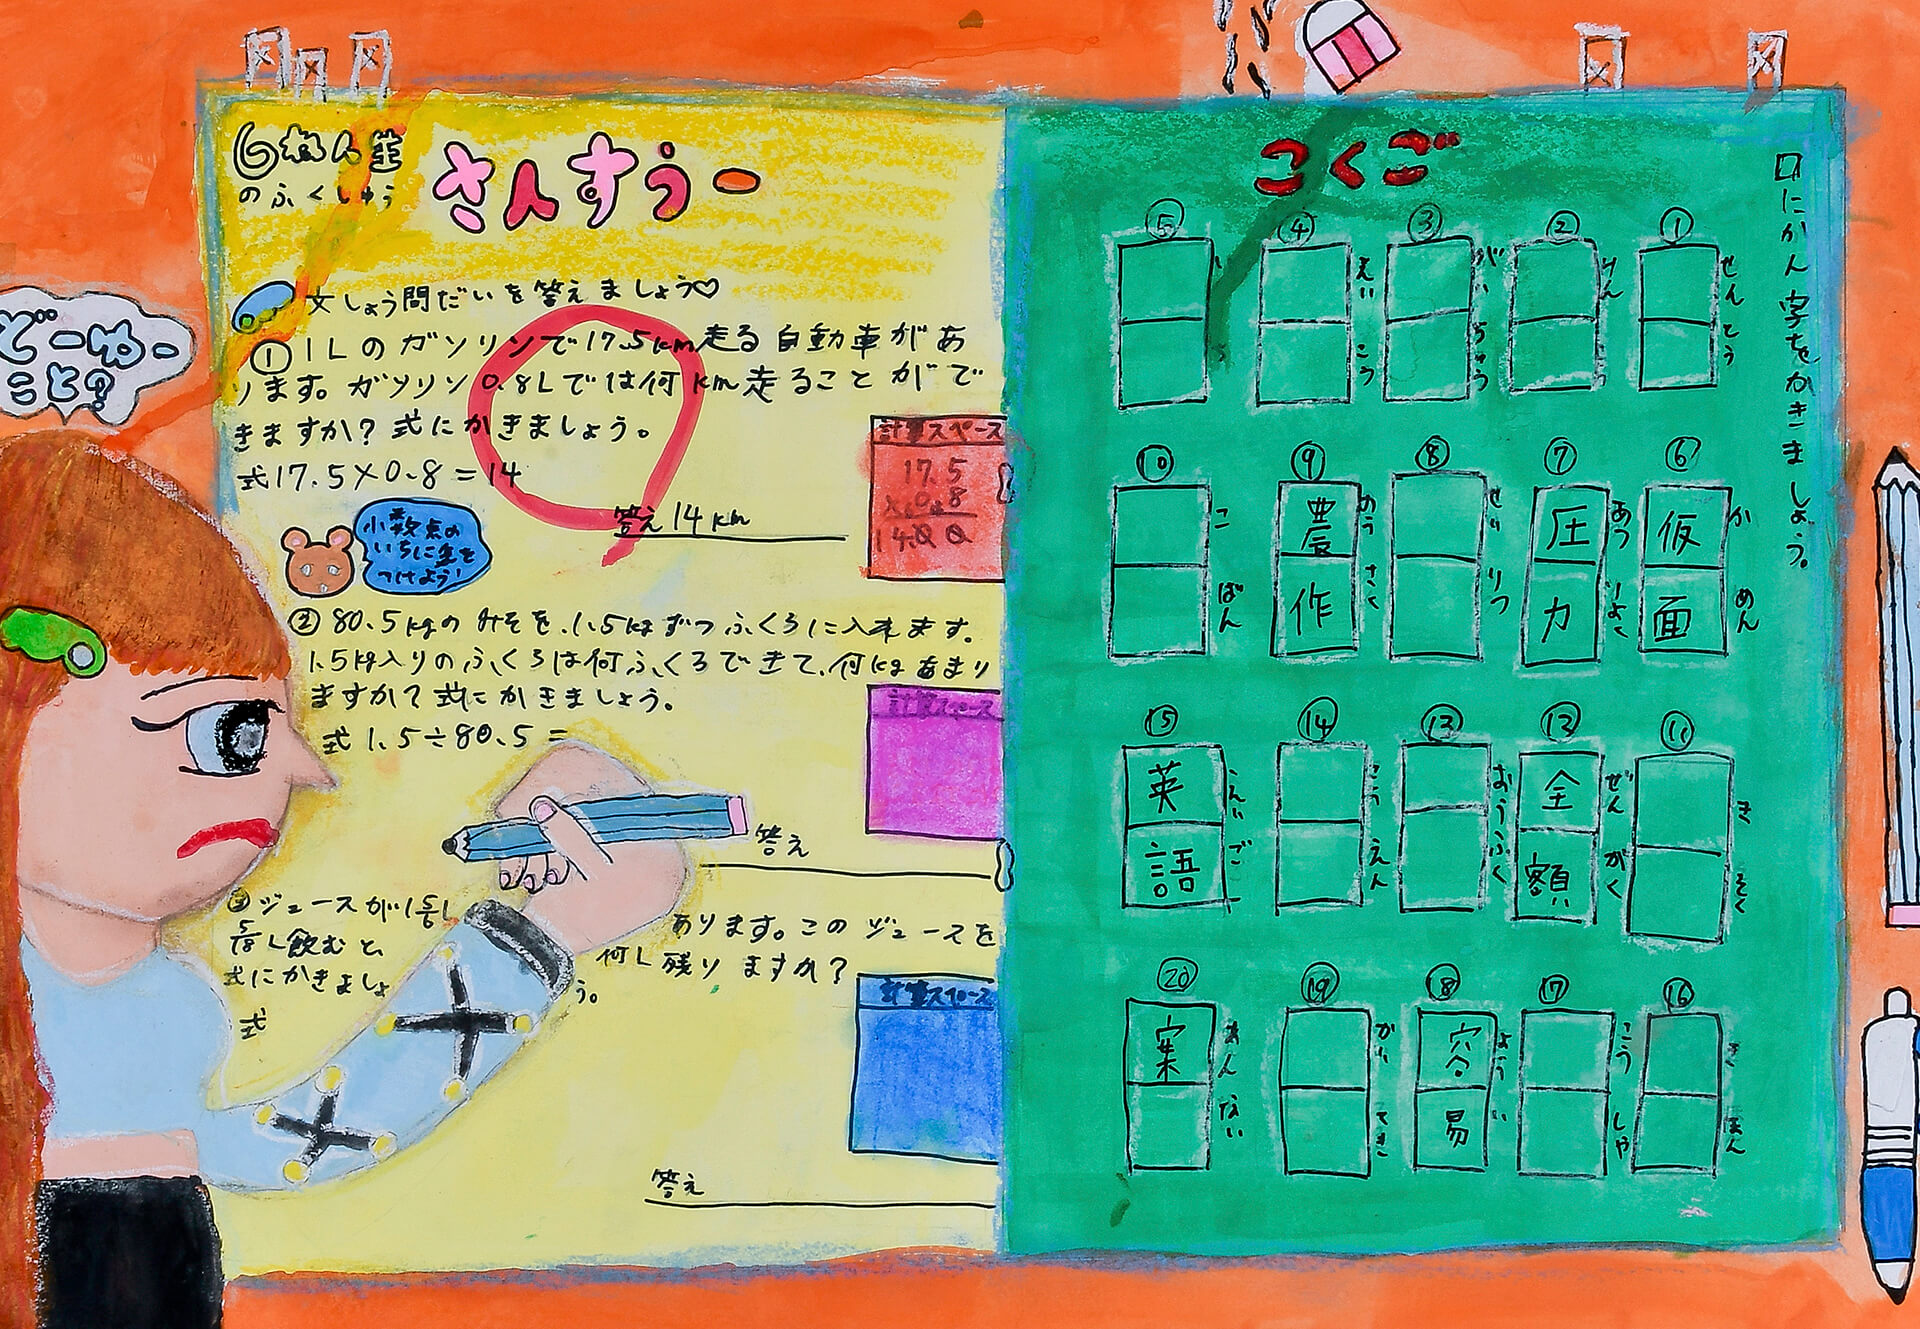 6ねん生
のふくしゅう
さんすうー
文しょう問だいを答えましょう♡
① 1Lのガソリンで17.5km走る自動車があ
ります。ガソリン0.8Lでは何km走ることがで
きますか?式にかきましょう。
式17.5×0.8=14
答え14km
計算スペース
17.5
×0.8
14.00
小数点の
いちに気を
つけよう!
② 80.5kgのみそを、1.5kgずつふくろに入れます。
1.5kg入りのふくろは何ふくろできて、何kgあまり
ますか?式にかきましょう。
計算スペース
式 1.5÷80.5=
答え
③ジュースが1 5/6L あります。このジュースを
5/8L飲むと、何L残りますか?
式にかきましょう。
計算スペース
式
答え
どーゆー
こと?
こくご
口にかん字をかきましょう。
① せんとう
② けん
③ がいちゅう
④ えいこう
⑤
⑥ 仮面 かめん
⑦ 圧力 あつりょく
⑧ せいりつ
⑨ 農作 のうさく
⑩ こばん
⑪ きそく
⑫ 全額 ぜんがく
⑬ おうふく
⑭ こうえん
⑮ 英語 えいご
⑯ きほん
⑰ こうしゃ
⑱ 容易 ようい
⑲ かいてき
⑳ 案 あんない